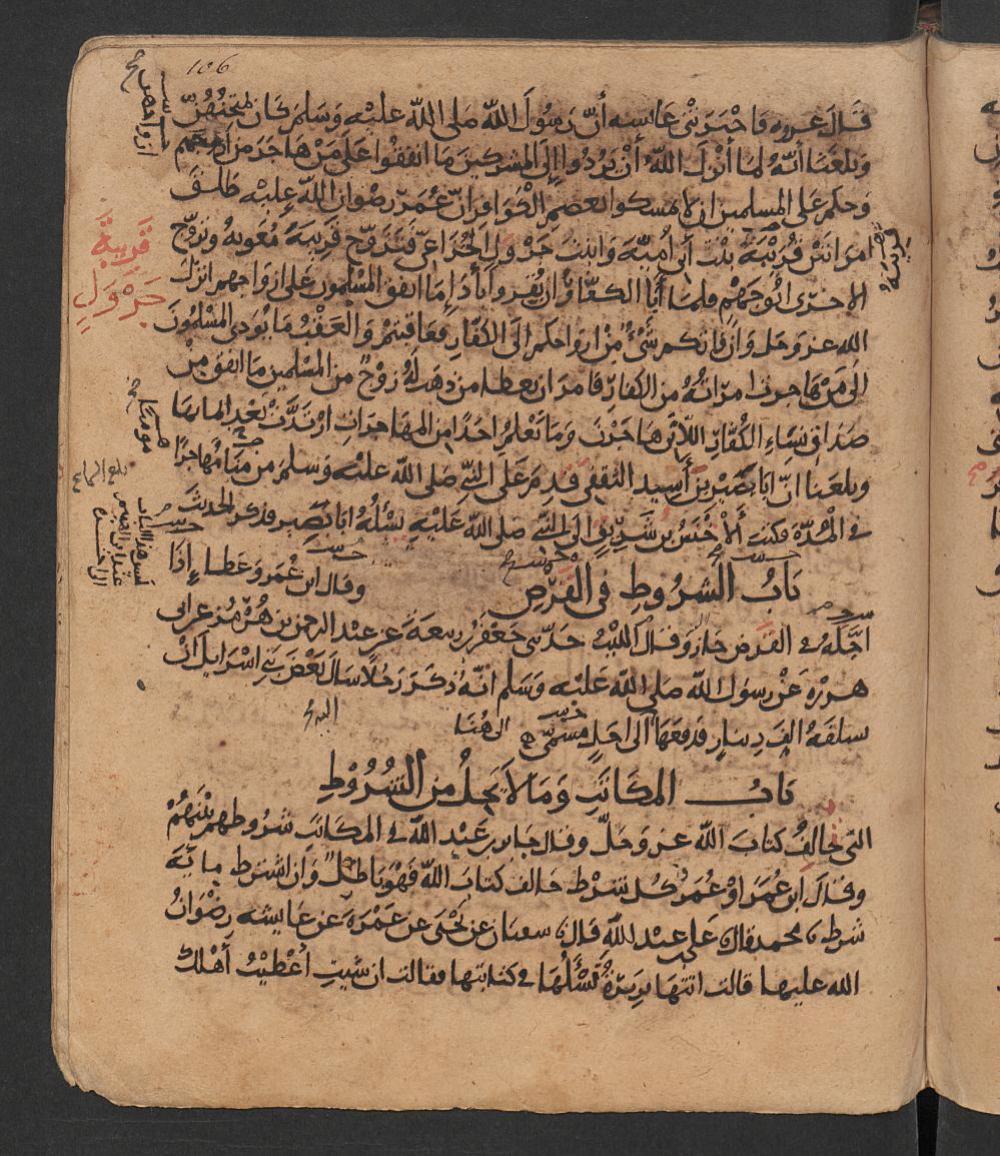 106
قال عروة فاخبرتني عايشه أنّ رسولَ اللّه صلى اللّه عليْه وَسَلم كان يمتحنُهُنّ
وبلغنا أنّه لما أنْزلَ اللّهُ أنْ يَرُدّوا إلى المشركين مَا انفقوا عَلى مَنْ هَاجَرَ من أزواجهم
وَحكم على المسلمين ان لا يمسكوا بعصم الكَوَافر انّ عُمَرَ رضوان اللّه عليْه طلّقَ
امراتَيْن قُرَيْبَةَ بنْت أبي أُميّةَ وابنتَ جَرْوَلٍ الخُزاعيّ فتزوّج قريبَةَ مُعوية وتزوّج
الاخرى ابُو جَهْمٍ فلمّا أبَا الكفّارُ ان يُقروا بأدا مَا انفق المسْلمون على ازواجهم انزلَ
الله عزوجل وَانْ فاتكم شَيْءٌ مّنْ ازواجكم الى الكفّار فعَاقبتمْ وَالعَقْبُ مَا يُؤدى المسْلمُونَ
الى مَنْ هَاجرت امرَاتُهُ من الكفار فامرَ ان يعطا من ذهَبَ لهُ زوْجٌ من المسْلمين مَا انفق منْ
صَداق نسَاءِ الكُفّارِ اللّاتي هَاجَرْنَ وَمَا نَعْلمُ احَدًا من المهَاجرَاتِ ارْتدّتْ بَعْد ايمانها
وبلغنا انّ ابَا بَصيْر بن أَسِيد الثقفي قدمَ على النّبي صَلى اللّه عليْه وَسلم من منًا مُهاجرًا
في المُدّة فكتبَ ألأخْنَسُ بن شَرِيقٍ الى النّبي صلى اللّه عَليْهِ يسْئلُهُ ابَا بَصِيرٍ فذكر الحديثَ
بَابُ الشروطِ في القَرْضِ وقال ابن عُمَر وَعَطا إذَا
اجّلهُ في القرْض جَاز وقال الليْثُ حَدّثني جَعْفَرُ بن ربيعَةَ عن عبْد الرحمن بن هُرْمُز عن ابي
هريْرةَ عَنْ رسول الله صَلى اللّه عَليْه وَسَلم انّهُ ذكَرَ رَجُلاً سَالَ بَعْضَ بَني اسْرَايلَ انْ
يسلفَهُ الفَ دِينارٍ فدفعَهَا الى اجَلٍ مُسَمًّى الى هُنَا
بَابُ المكَاتَبِ وَمَا لاَ يَحِلُّ من الشُّرُوْطِ
التي خالفُ كتابَ اللّه عز وَجلّ وقال جَابر بن عَبْد اللّه في المكَاتَبِ شرُوطهم بيْنَهُمْ
وقالَ ابن عُمَرَ اوْ عُمَرُ كُل شرْط خالف كتابَ اللّه فَهْوَ بَاطِلٌ وَان اشترط مِائةَ
شرْط محمد قال علي عبْد اللّه قال سفيان عن يَحْيَى عن عَمْرَةَ عن عَايشه رضْوَانُ
الله عليها قالت اتتْهَا بَرِيْرَةُ تَسْئلُهَا في كتابتها فقالت ان شيتِ أعْطيْتُ أهْلكِ
ازواجهن
قَرِيبَةَ
جَرْوَلٍ